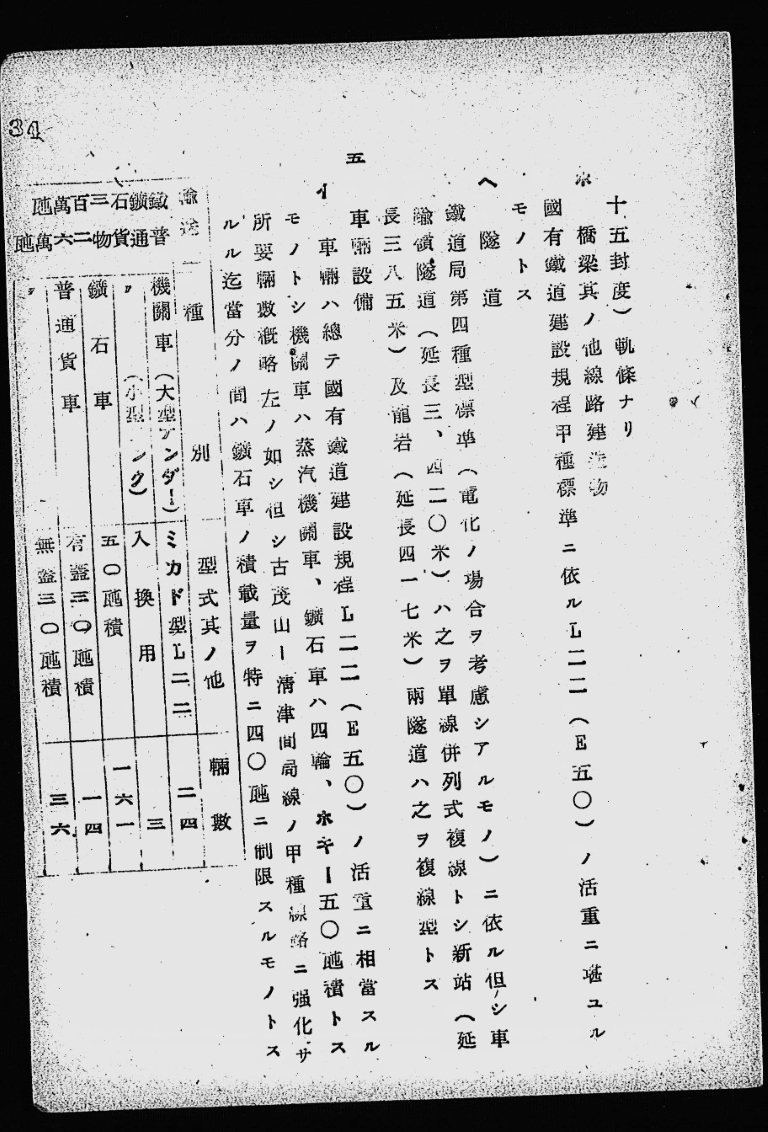 34
十五封度）軌條ナリ
ホ　橋梁其ノ他線路建造物
國有鐵道建設規程甲種標準ニ依ルL二二（E五〇）ノ活重ニ堪ユル
モノトス
ヘ　隧道
鐵道局第四種型標準（電化ノ場合ヲ考慮シアルモノ）ニ依ル但シ車
踰嶺隧道（延長三、四二〇米）ハ之ヲ單線併列式複線トシ新站（延
長三八五米）及龍岩（延長四一七米）兩隧道ハ之ヲ複線型トス
五　車輛設備
イ　車輛ハ總テ國有鐵道建設規程L二二（E五〇）ノ活重ニ相當スル
モノトシ機關車ハ蒸汽機關車、鑛石車ハ四輪、ホキー五〇瓲積トス
所要輛數概略左ノ如シ但シ古茂山ー清津間局線ノ甲種線路ニ强化サ
ルル迄當分ノ間ハ鑛石車ノ積載量ヲ特ニ四〇瓲ニ制限スルモノトス
輸送　種別　型式其ノ他　輛數
鐵鑛石三百萬瓲　普通貨物二六萬瓲
機關車（大型テンダー）　ミカド型L二二　二四
〃（小型タンク）　入換用　三
鑛石車　五〇瓲積　一六一
普通貨車　有蓋三〇瓲積　一四
〃　無蓋三〇瓲積　三六